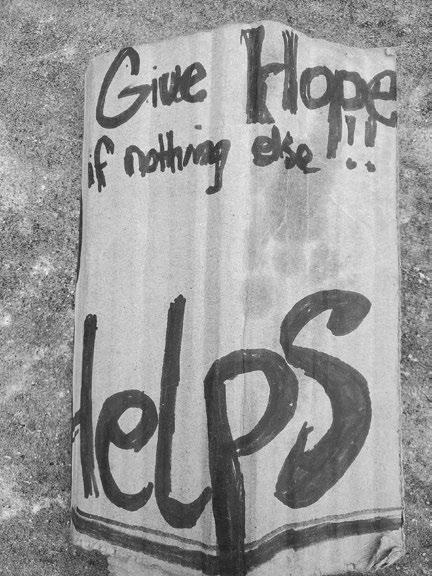 Give Hope
if nothing else !!
HeLpS